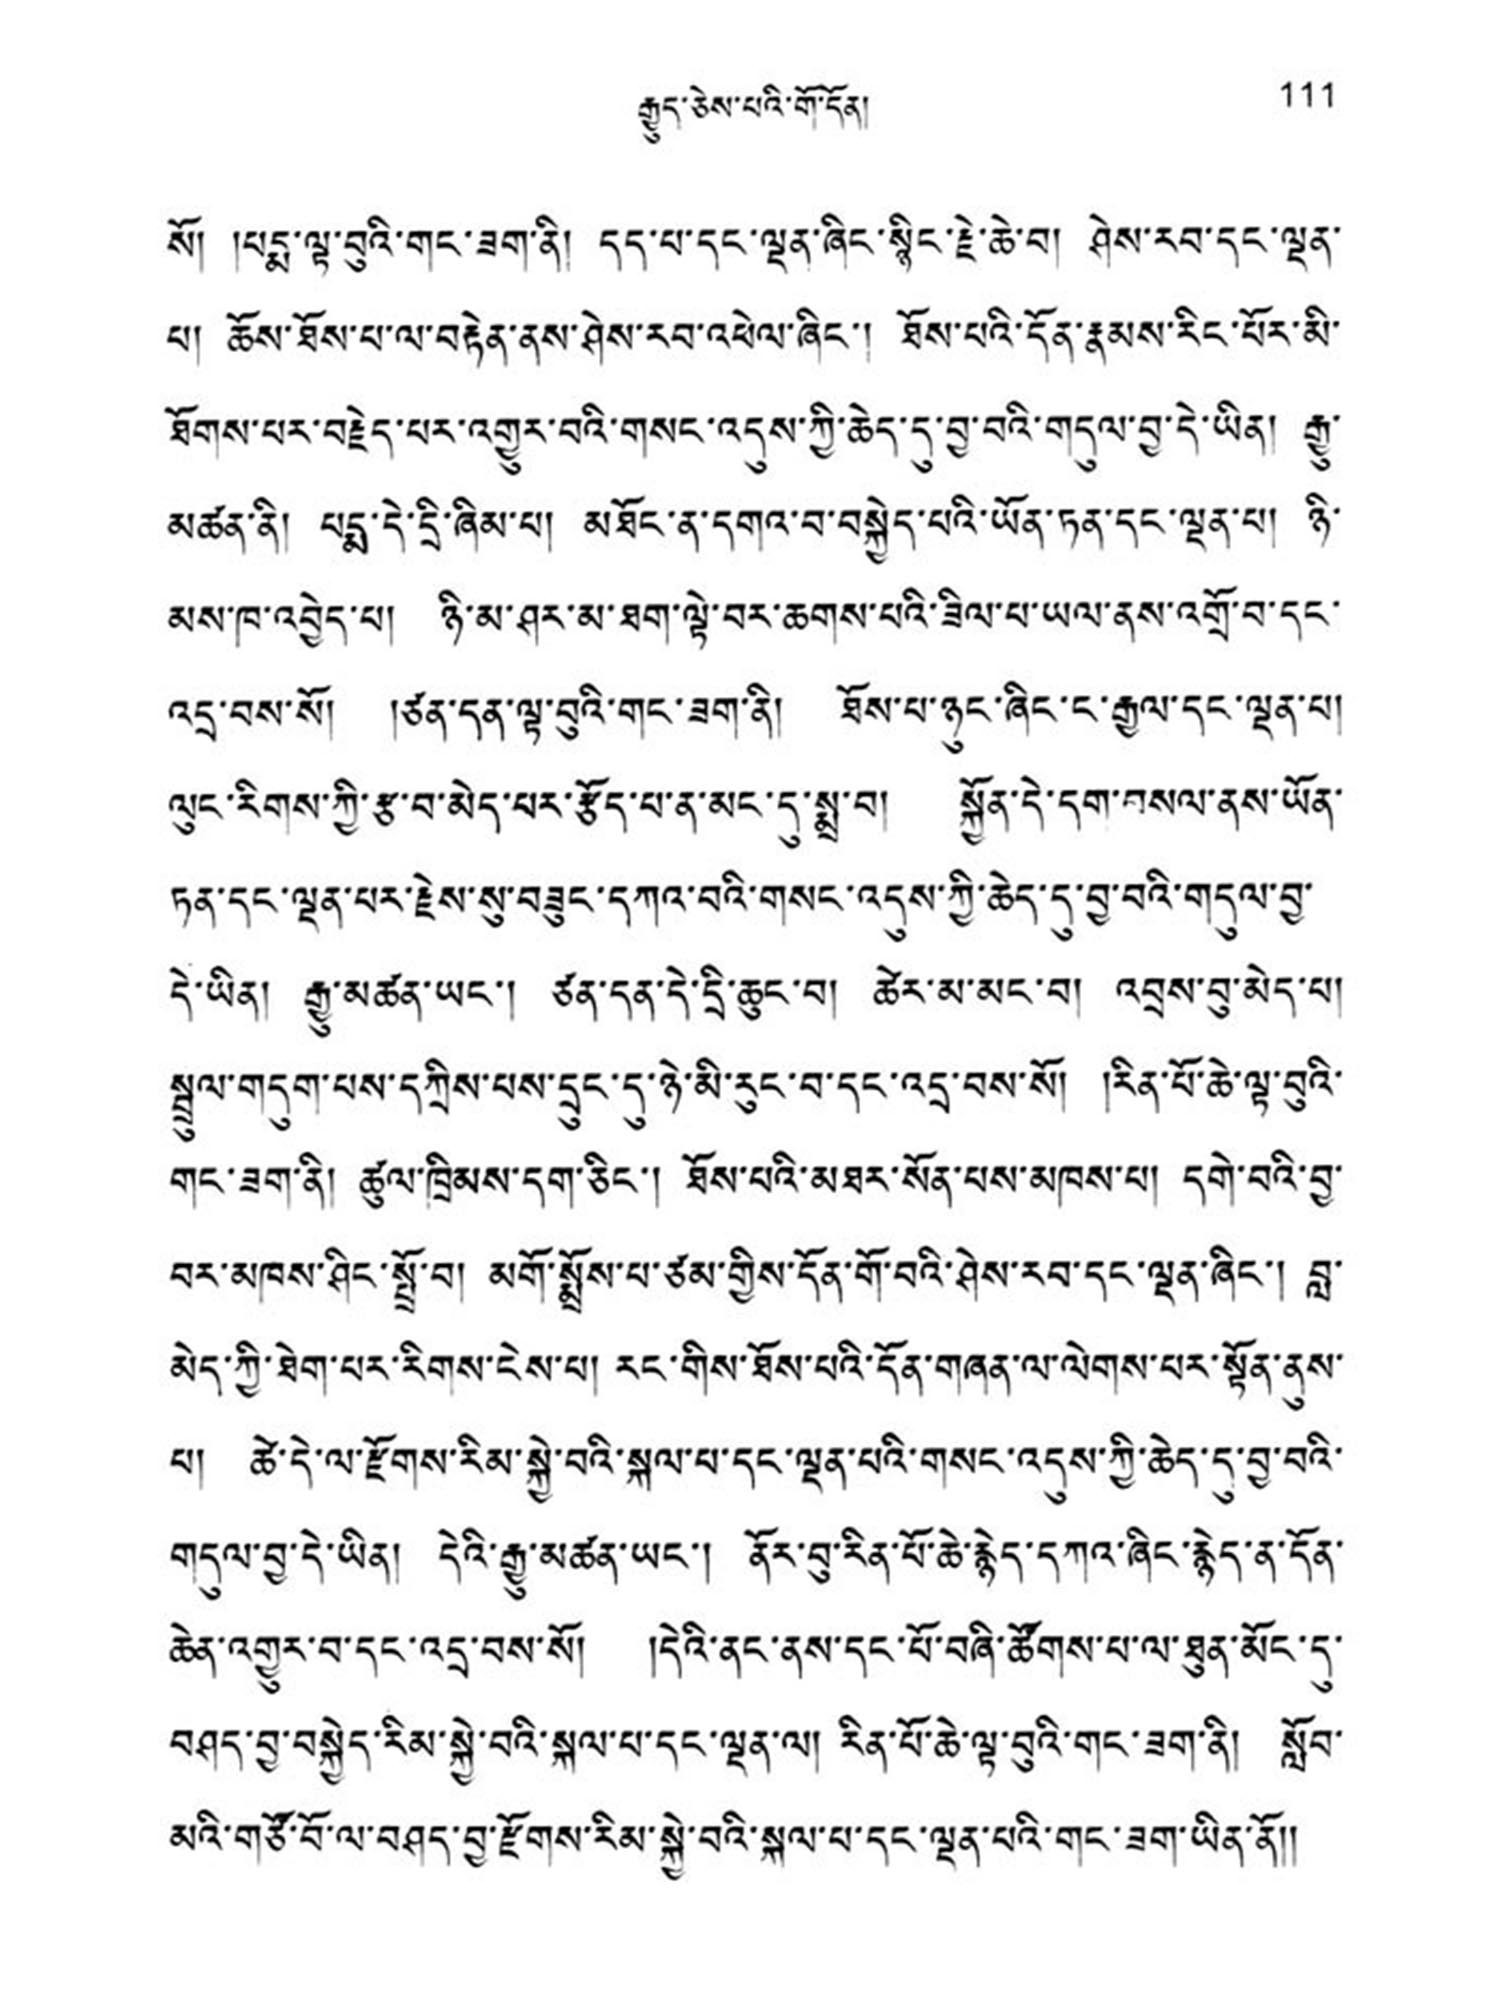 རྒྱུད་ཅེས་པའི་གོ་དོན།
111
སོ། །པདྨ་ལྟ་བུའི་གང་ཟག་ནི། དད་པ་དང་ལྡན་ཞིང་སྙིང་རྗེ་ཆེ་བ། ཤེས་རབ་དང་ལྡན་
པ། ཆོས་ཐོས་པ་ལ་བརྟེན་ནས་ཤེས་རབ་འཕེལ་ཞིང་། ཐོས་པའི་དོན་རྣམས་རིང་པོར་མི་
ཐོགས་པར་བརྗེད་པར་འགྱུར་བའི་གསང་འདུས་ཀྱི་ཆེད་དུ་བྱ་བའི་གདུལ་བྱ་དེ་ཡིན། རྒྱུ་
མཚན་ནི། པདྨ་དེ་དྲི་ཞིམ་པ། མཐོང་ན་དགའ་བ་བསྐྱེད་པའི་ཡོན་ཏན་དང་ལྡན་པ། ཉི་
མས་ཁ་འབྱེད་པ། ཉི་མ་ཤར་མ་ཐག་ལྟེ་བར་ཆགས་པའི་ཟིལ་པ་ཡལ་ནས་འགྲོ་བ་དང་
འདྲ་བས་སོ། །ཙན་དན་ལྟ་བུའི་གང་ཟག་ནི། ཐོས་པ་ཉུང་ཞིང་ང་རྒྱལ་དང་ལྡན་པ།
ལུང་རིགས་ཀྱི་རྩ་བ་མེད་པར་རྩོད་པ་ན་མང་དུ་སྨྲ་བ། སྐྱོན་དེ་དག་བསལ་ནས་ཡོན་
ཏན་དང་ལྡན་པར་རྗེས་སུ་བཟུང་དཀའ་བའི་གསང་འདུས་ཀྱི་ཆེད་དུ་བྱ་བའི་གདུལ་བྱ་
དེ་ཡིན། རྒྱུ་མཚན་ཡང་། ཙན་དན་དེ་དྲི་ཆུང་བ། ཚེར་མ་མང་བ། འབྲས་བུ་མེད་པ།
སྦྲུལ་གདུག་པས་དཀྲིས་པས་དྲུང་དུ་ཉེ་མི་རུང་བ་དང་འདྲ་བས་སོ། །རིན་པོ་ཆེ་ལྟ་བུའི་
གང་ཟག་ནི། ཚུལ་ཁྲིམས་དག་ཅིང་། ཐོས་པའི་མཐར་སོན་པས་མཁས་པ། དགེ་བའི་བྱ་
བར་མཁས་ཤིང་སྤྲོ་བ། མགོ་སྨྲོས་པ་ཙམ་གྱིས་དོན་གོ་བའི་ཤེས་རབ་དང་ལྡན་ཞིང་། བླ་
མེད་ཀྱི་ཐེག་པར་རིགས་ངེས་པ། རང་གིས་ཐོས་པའི་དོན་གཞན་ལ་ལེགས་པར་སྟོན་ནུས་
པ། ཚེ་དེ་ལ་རྫོགས་རིམ་སྐྱེ་བའི་སྐལ་པ་དང་ལྡན་པའི་གསང་འདུས་ཀྱི་ཆེད་དུ་བྱ་བའི་
གདུལ་བྱ་དེ་ཡིན། དེའི་རྒྱུ་མཚན་ཡང་། ནོར་བུ་རིན་པོ་ཆེ་རྙེད་དཀའ་ཞིང་རྙེད་ན་དོན་
ཆེན་འགྱུར་བ་དང་འདྲ་བས་སོ། །དེའི་ནང་ནས་དང་པོ་བཞི་ཚོགས་པ་ལ་ཐུན་མོང་དུ་
བཤད་བྱ་བསྐྱེད་རིམ་སྐྱེ་བའི་སྐལ་པ་དང་ལྡན་ལ། རིན་པོ་ཆེ་ལྟ་བུའི་གང་ཟག་ནི། སློབ་
མའི་གཙོ་བོ་ལ་བཤད་བྱ་རྫོགས་རིམ་སྐྱེ་བའི་སྐལ་པ་དང་ལྡན་པའི་གང་ཟག་ཡིན་ནོ།།